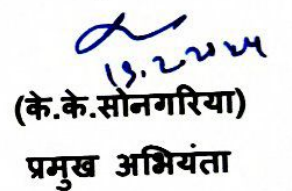 19.2.2024
(के.के.सोनगरिया)
प्रमुख अभियंता